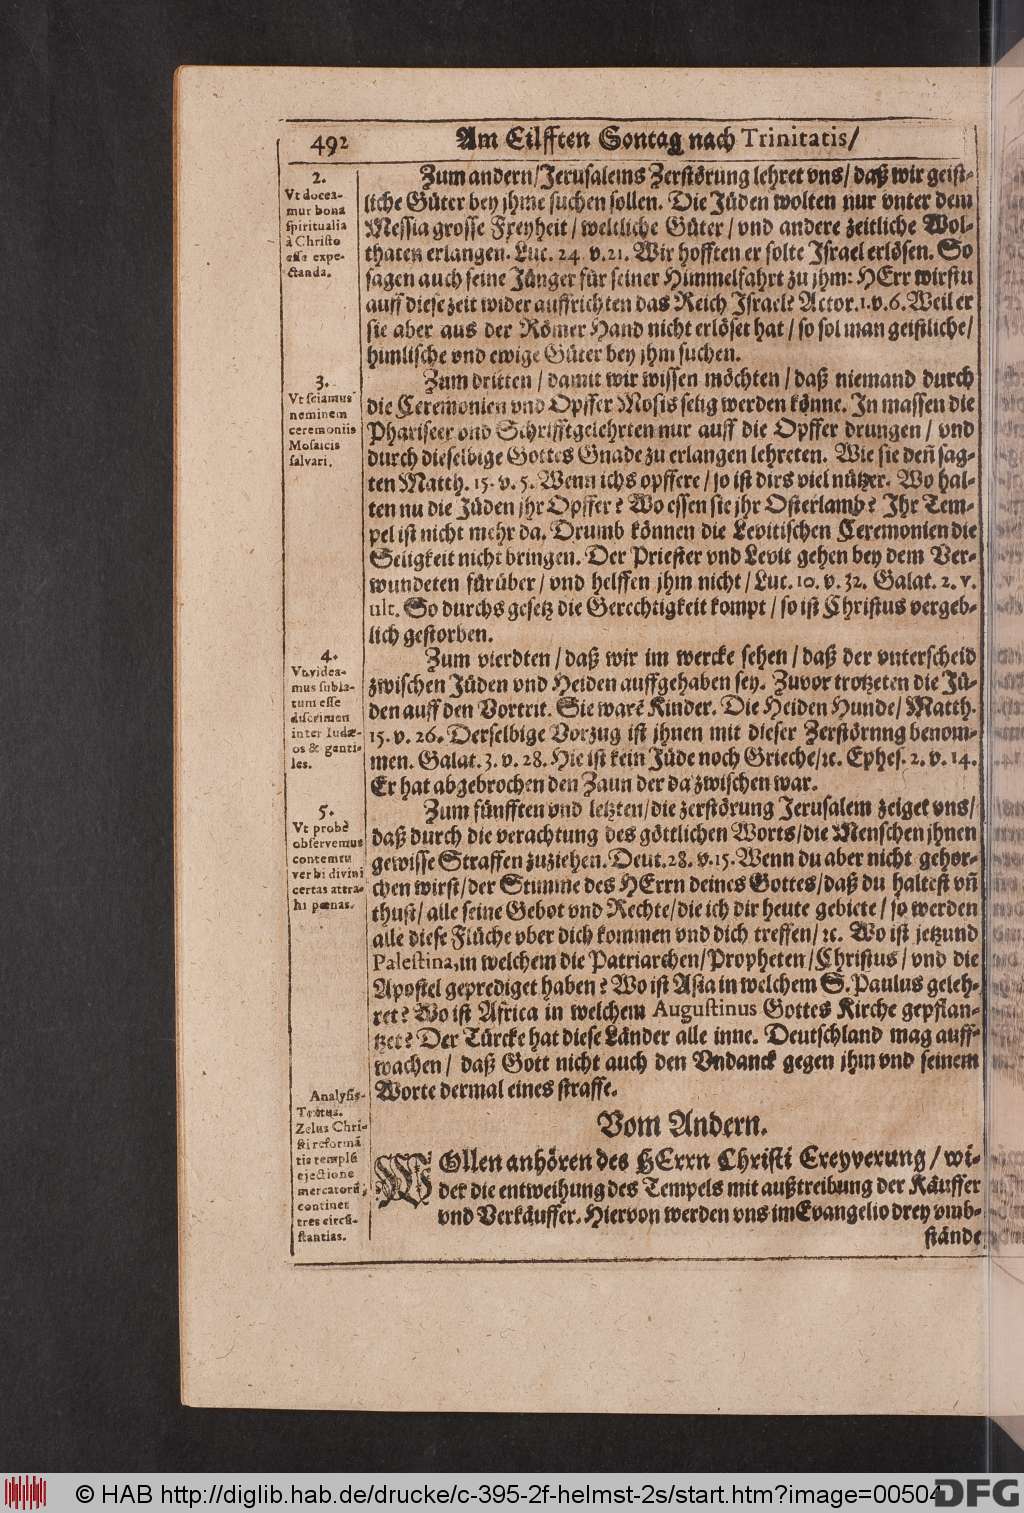 492
Am Eilfften Sontag nach Trinitatis/
2.
Vt docea-
mur bona
spiritualia
à Christo
esse expe-
ctanda.
Zum andern/Jerusalems Zerstörung lehret vns/ daß wir geist-
liche Güter bey jhme suchen sollen. Die Jüden wolten nur vnter dem
Messia grosse Freyheit/ weltliche Güter/ vnd andere zeitliche Wol-
thaten erlangen. Luc. 24. v. 21. Wir hofften er solte Israel erlösen. So
sagen auch seine Jünger für seiner Himmelfahrt zu jhm: HErr wirstu
auff diese zeit wider auffrichten das Reich Israel? Actor. 1. v. 6. Weil er
sie aber aus der Römer Hand nicht erlöset hat/ so sol man geistliche/
himlische vnd ewige Güter bey jhm suchen.
3.
Vt sciamus
neminem
ceremoniis
Mosaicis
salvari.
Zum dritten/ damit wir wissen möchten/ daß niemand durch
die Ceremonien vnd Opffer Mosis selig werden könne. In massen die
Phariseer vnd Schrifftgelehrten nur auff die Opffer drungen/ vnd
durch dieselbige Gottes Gnade zu erlangen lehreten. Wie sie deñ sag-
ten Matth. 15. v. 5. Wenn ichs opffere/ so ist dirs viel nützer. Wo hal-
ten nu die Jüden jhr Opffer? Wo essen sie jhr Osterlamb? Ihr Tem-
pel ist nicht mehr da. Drumb können die Levitischen Ceremonien die
Seligkeit nicht bringen. Der Priester vnd Levit gehen bey dem Ver-
wundeten fürüber/ vnd helffen jhm nicht/ Luc. 10. v. 32. Galat. 2. v.
ult. So durchs gesetz die Gerechtigkeit kompt/ so ist Christus vergeb-
lich gestorben.
4.
Vt videa-
mus subla-
tum esse
discrimen
inter Iudæ-
os & genti-
les.
Zum vierdten/ daß wir im wercke sehen/ daß der vnterscheid
zwischen Jüden vnd Heiden auffgehaben sey. Zuvor trotzeten die Jü-
den auff den Vortrit. Sie warẽ Kinder. Die Heiden Hunde/ Matth.
15. v. 26. Derselbige Vorzug ist jhnen mit dieser Zerstörnng benom-
men. Galat. 3. v. 28. Hie ist kein Jüde noch Grieche/ꝛc. Ephes. 2. v. 14.
Er hat abgebrochen den Zaun der da zwischen war.
5.
Vt probè
observemus
contemtu
verbi divini
certas attra-
hi pœnas.
Zum fünfften vnd letzten/die zerstörung Jerusalem zeiget vns/
daß durch die verachtung des göttlichen Worts/die Menschen jhnen
gewisse Straffen zuziehen. Deut. 28. v. 15. Wenn du aber nicht gehor-
chen wirst/der Stimme des HErrn deines Gottes/daß du haltest vñ
thust/ alle seine Gebot vnd Rechte/die ich dir heute gebiete/ so werden
alle diese Flüche vber dich kommen vnd dich treffen/ ꝛc. Wo ist jetzund
Palestina, in welchem die Patriarchen/Propheten/Christus/ vnd die
Apostel geprediget haben? Wo ist Asia in welchem S. Paulus geleh-
ret? Wo ist Africa in welchem Augustinus Gottes Kirche gepflan-
tzet? Der Türcke hat diese Länder alle inne. Deutschland mag auff-
wachen/ daß Gott nicht auch den Vndanck gegen jhm vnd seinem
Worte dermal eines straffe.
Vom Andern.
Analysis
Textus.
Zelus Chri-
sti reformã
tis templũ
ejectione
mercatorũ,
continet
tres circũ-
stantias.
WOllen anhören des HErrn Christi Ereyverung/ wi-
der die entweihung des Tempels mit außtreibung der Käuffer
vnd Verkäuffer. Hiervon werden vns im Evangelio drey vmb-
stände
© HAB http://diglib.hab.de/drucke/c-395-2f-helmst-2s/start.htm?image=00504
DFG